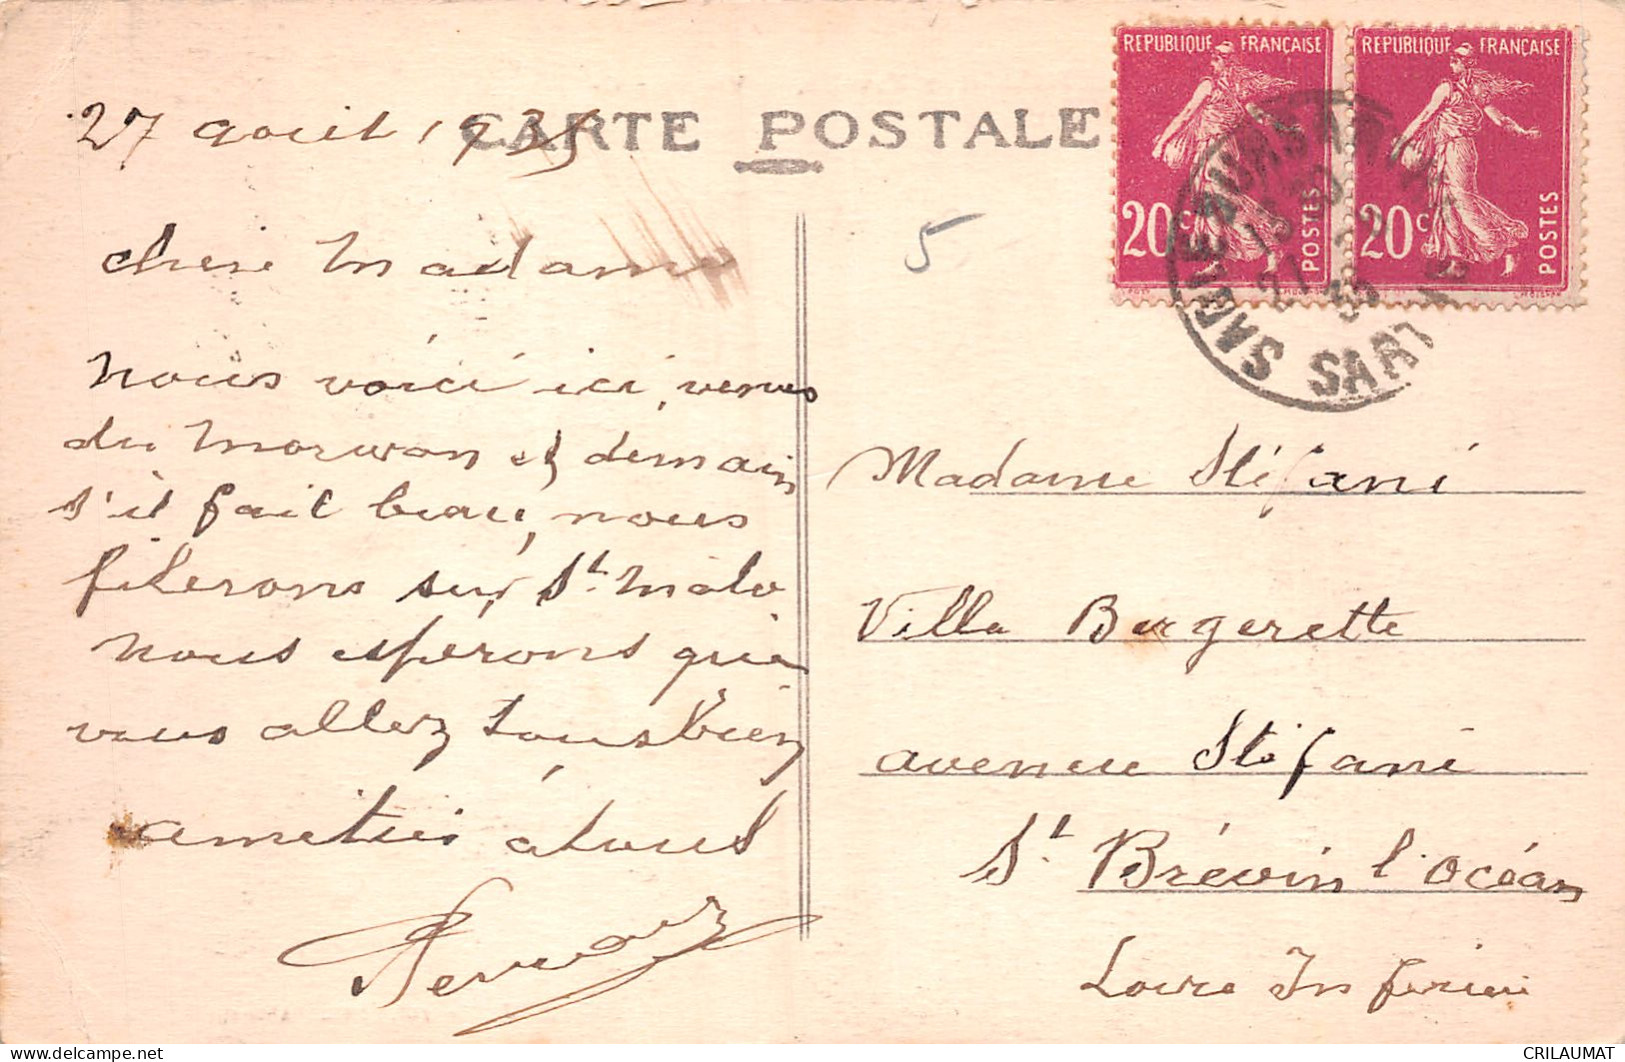 CARTE POSTALE
27 août 1935
chère Madame
nous voici ici, venus
du Morwan et demain
s'il fait beau, nous
filerons sur St. Malo
nous espérons que
vous allez tous bien
amitiés à tous
5
REPUBLIQUE FRANÇAISE
20c POSTES
REPUBLIQUE FRANÇAISE
20c POSTES
SABLE SUR SARTHE
SARTHE
Madame Stéfani
Villa Bergerette
avenue Stéfani
St. Brévin l'océan
Loire Inférieure
CRILAUMAT